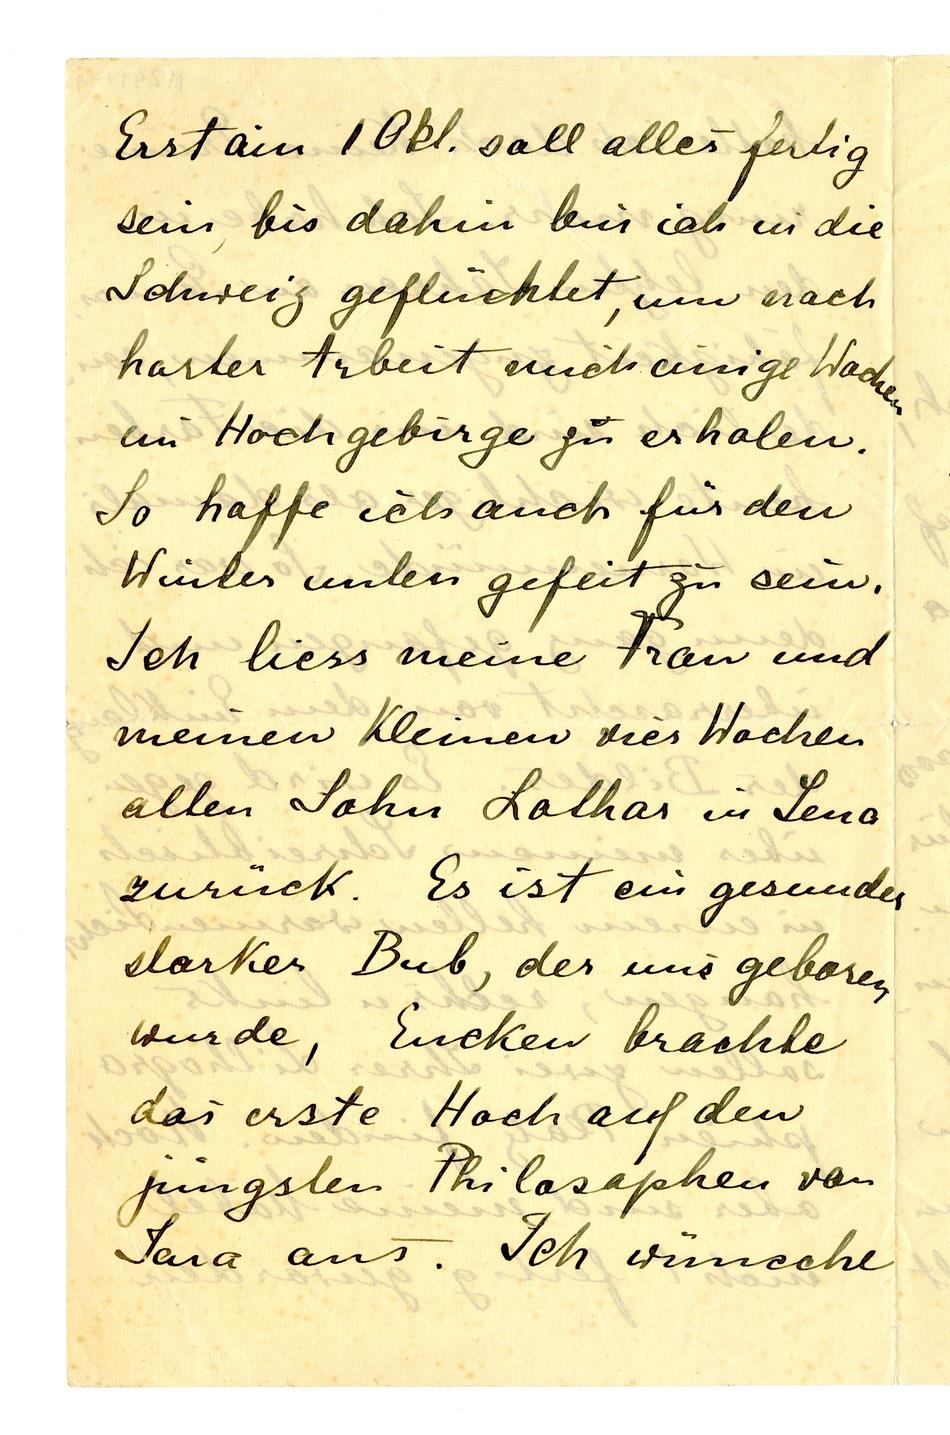 Erst am 1 Okt. soll alles fertig
sein, bis dahin bin ich in die
Schweiz geflüchtet, um nach
harter Arbeit mich einige Wochen
im Hochgebirge zu erholen.
So hoffe ich auch für den
Winter unten gefeit zu sein.
Ich liess meine Frau und
meinen Kleinen vier Wochen
alten Sohn Lothar in Jena
zurück. Es ist ein gesunder
starker Bub, der uns geboren
wurde, Eucken brachte
das erste Hoch auf den
jüngsten Philosophen von
Jena aus. Ich wünsche